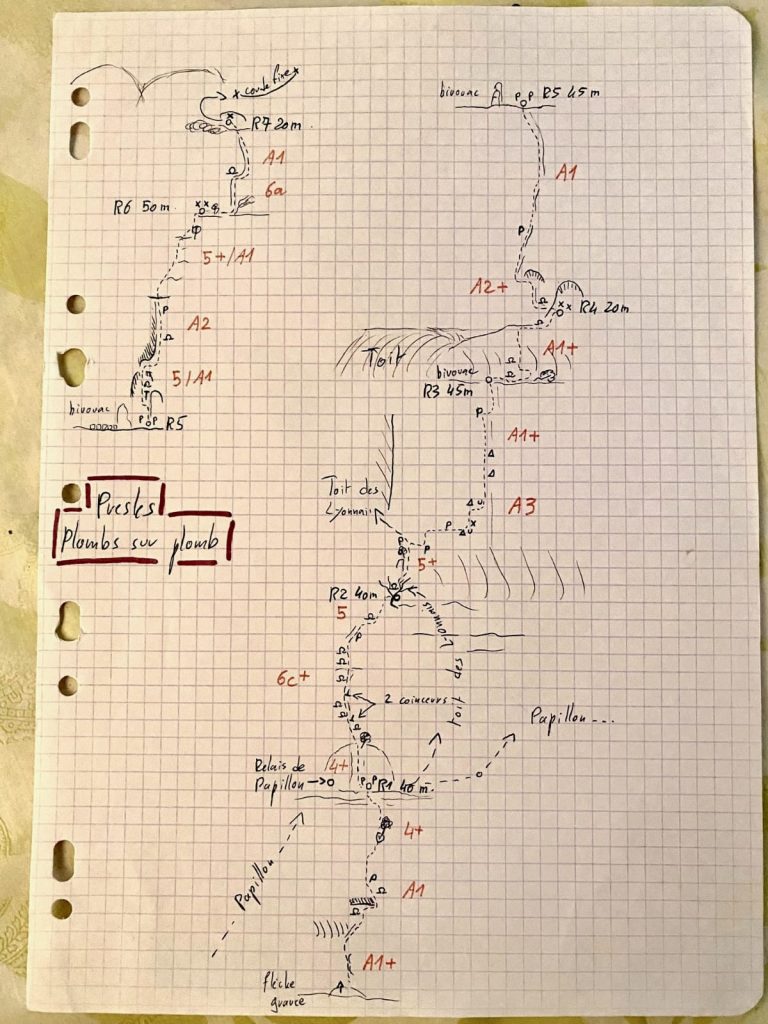 corde fixe
R7 20m
A1
6a
R6 50m
5+/A1
A2
5/A1
bivouac
R5
Presles
Plombs sur plomb
bivouac
R5 45m
A1
A2+
R4 20m
Toit
A1+
bivouac
R3 45m
A1+
A3
Toit des
Lyonnais
5+
R2 40m
5
Toit des Lyonnais
6c+
2 coinceurs
Papillon...
Relais de
Papillon
4+
R1 40m
4+
Papillon
A1
A1+
flèche
gravée